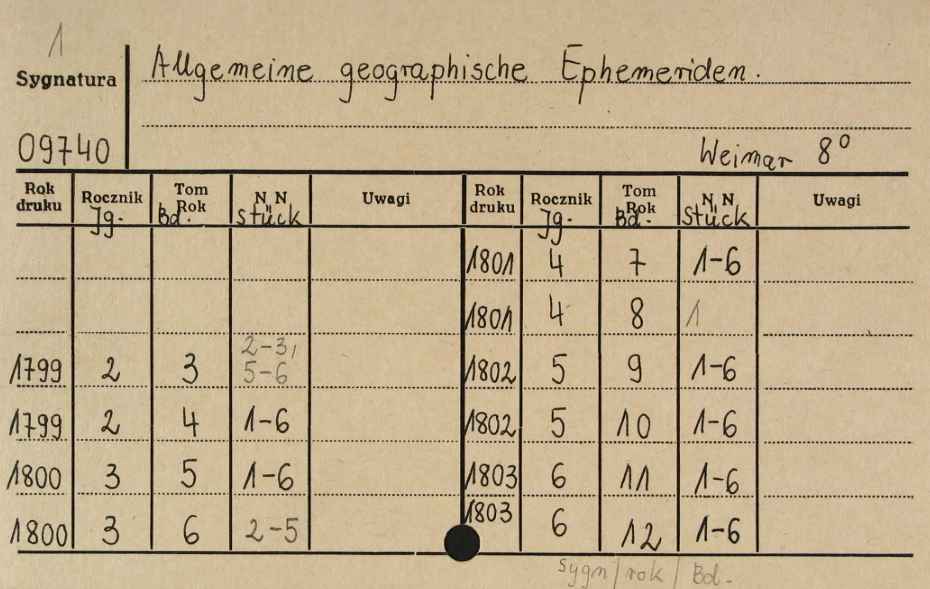 1
Sygnatura
Allgemeine geographische Ephemeriden.
09740
Weimar 8°
Rok druku Rocznik Jg. Tom Rok Bd. N, N stück Uwagi Rok druku Rocznik Jg. Tom Rok Bd. N, N stück Uwagi
1801 4 7 1-6
1801 4 8 1
1799 2 3 2-3, 5-6 1802 5 9 1-6
1799 2 4 1-6 1802 5 10 1-6
1800 3 5 1-6 1803 6 11 1-6
1800 3 6 2-5 1803 6 12 1-6
Sygn/rok/Bd.